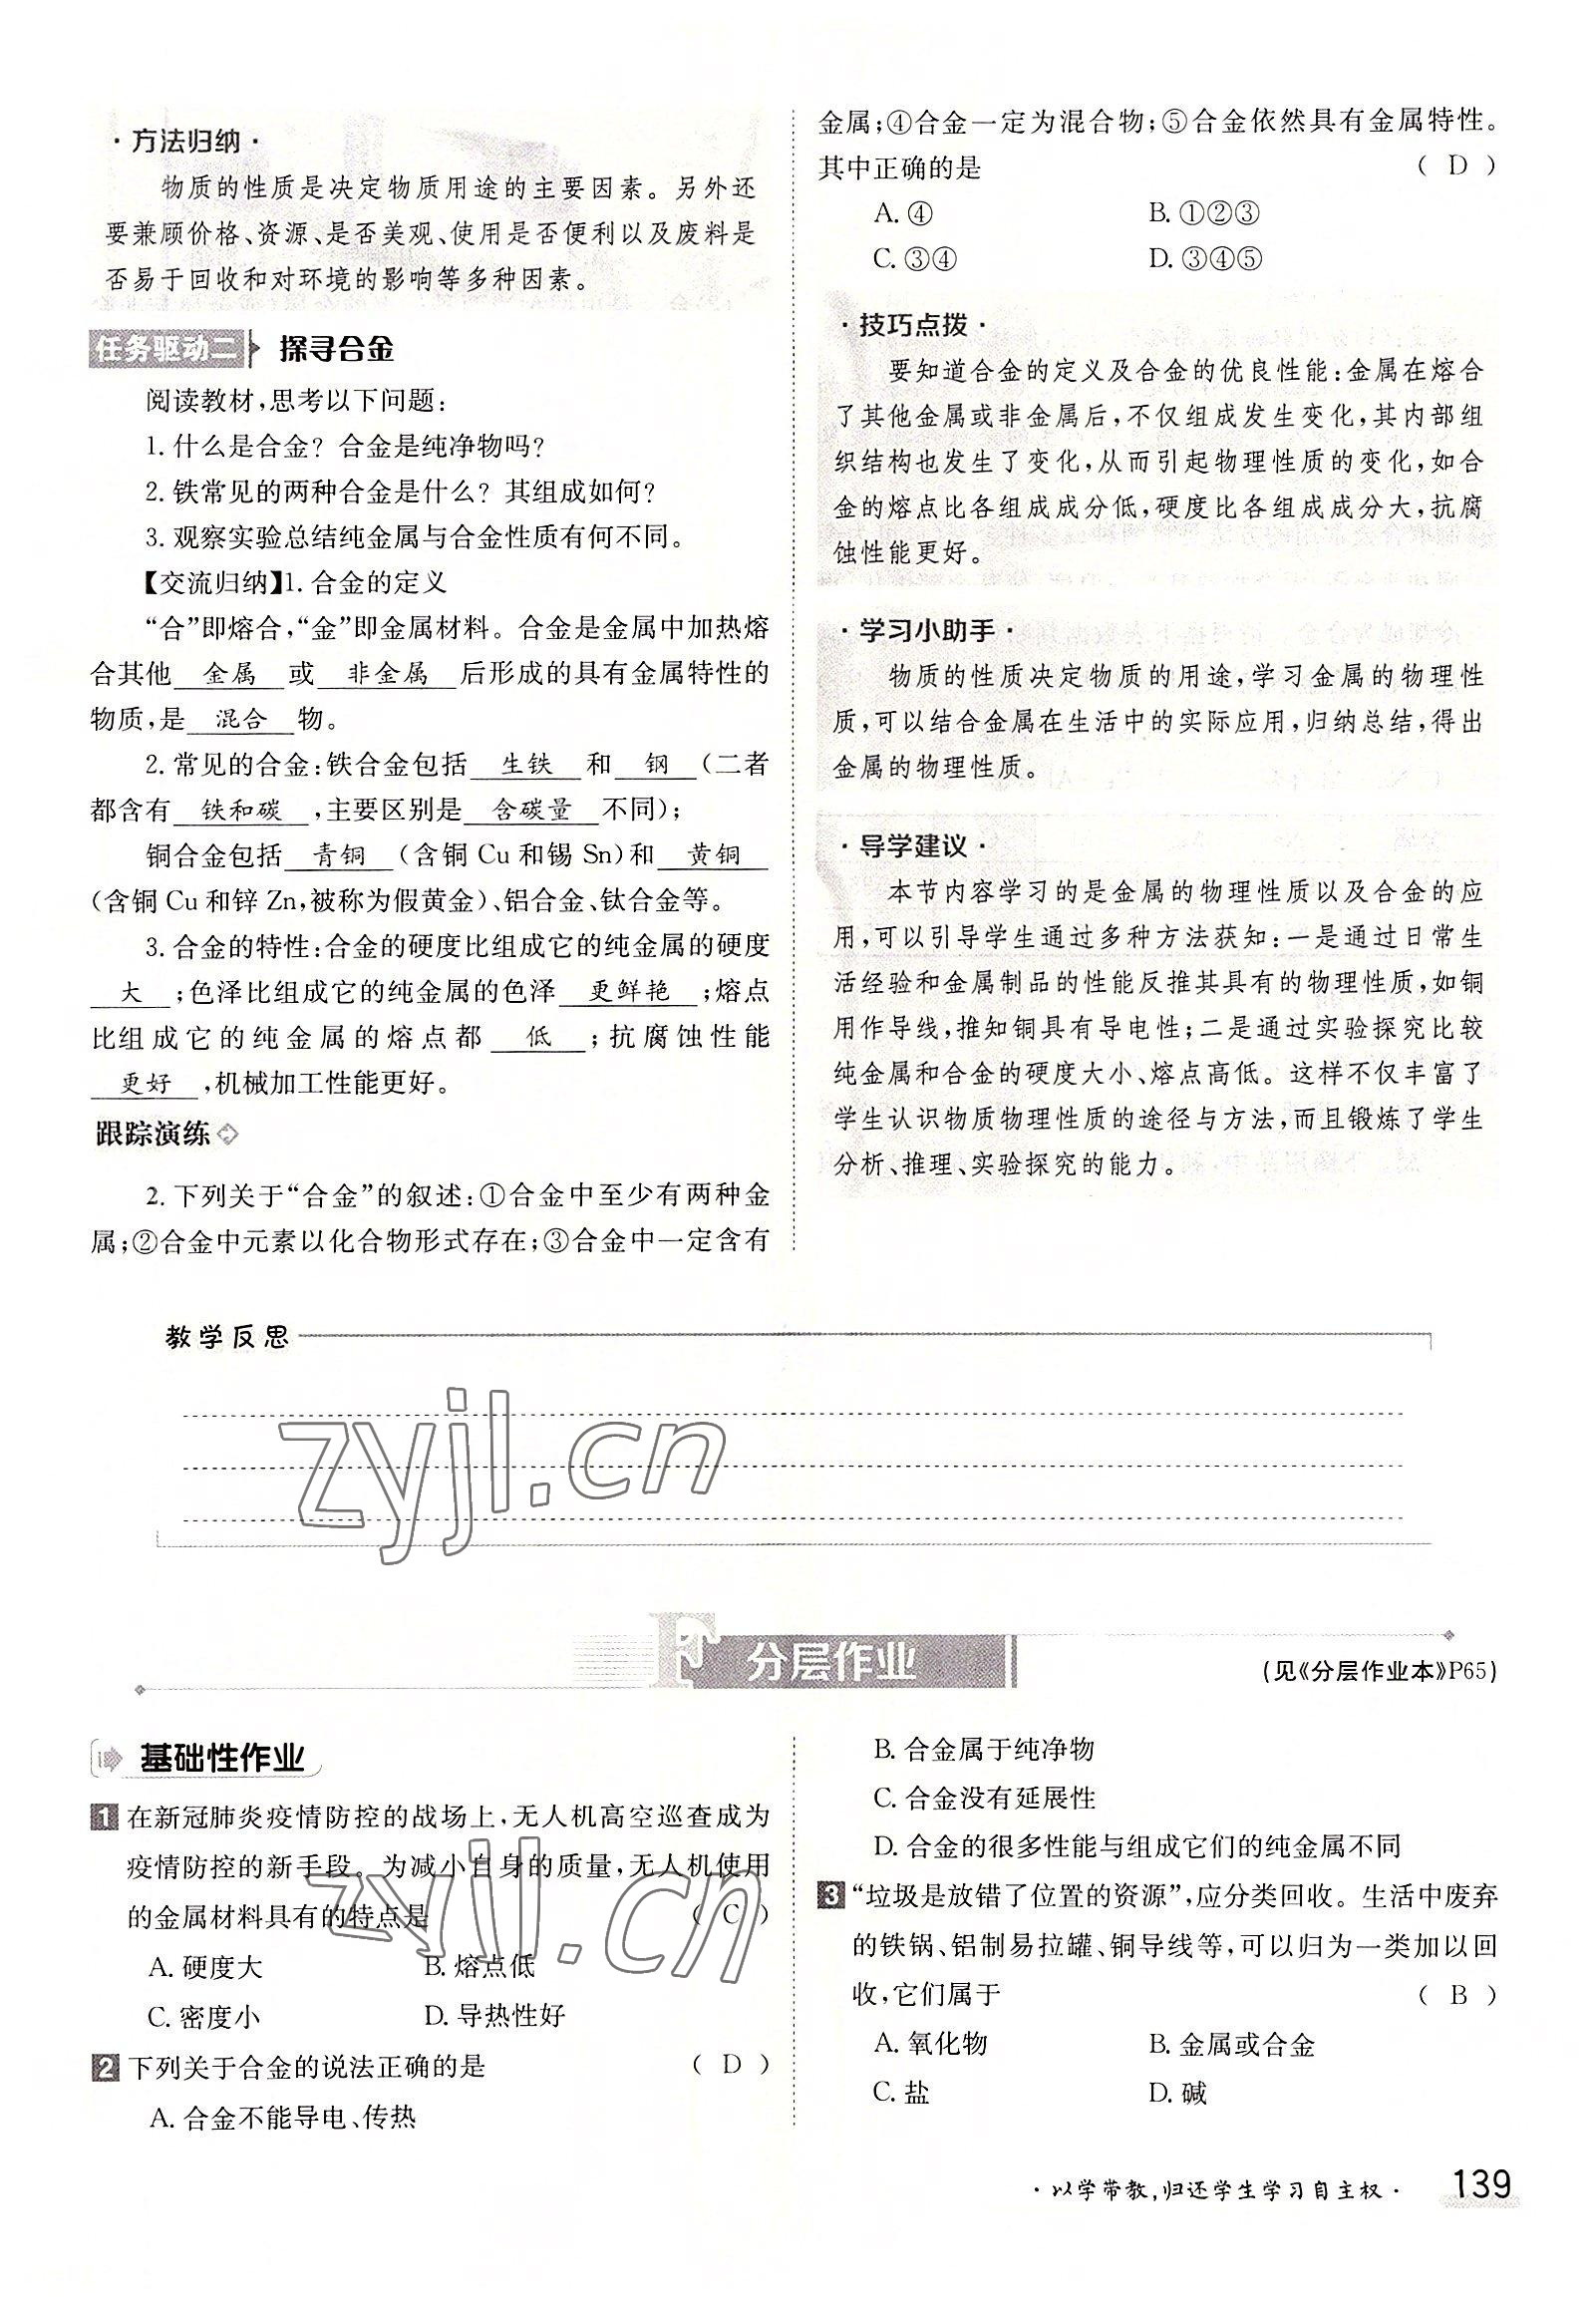 ·方法归纳·
物质的性质是决定物质用途的主要因素。另外还
要兼顾价格、资源、是否美观、使用是否便利以及废料是
否易于回收和对环境的影响等多种因素。
任务驱动二 探寻合金
阅读教材,思考以下问题:
1. 什么是合金? 合金是纯净物吗?
2. 铁常见的两种合金是什么? 其组成如何?
3. 观察实验总结纯金属与合金性质有何不同。
【交流归纳】1. 合金的定义
“合”即熔合,“金”即金属材料。合金是金属中加热熔
合其他 金属 或 非金属 后形成的具有金属特性的
物质,是 混合 物。
2. 常见的合金:铁合金包括 生铁 和 钢 (二者
都含有 铁和碳 ,主要区别是 含碳量 不同);
铜合金包括 青铜 (含铜 Cu 和锡 Sn)和 黄铜
(含铜 Cu 和锌 Zn,被称为假黄金)、铝合金、钛合金等。
3. 合金的特性:合金的硬度比组成它的纯金属的硬度
大 ;色泽比组成它的纯金属的色泽 更鲜艳 ;熔点
比组成它的纯金属的熔点都 低 ;抗腐蚀性能
更好 ,机械加工性能更好。
跟踪演练
2. 下列关于“合金”的叙述:①合金中至少有两种金
属;②合金中元素以化合物形式存在;③合金中一定含有
金属;④合金一定为混合物;⑤合金依然具有金属特性。
其中正确的是 ( D )
A. ④ B. ①②③
C. ③④ D. ③④⑤
·技巧点拨·
要知道合金的定义及合金的优良性能:金属在熔合
了其他金属或非金属后,不仅组成发生变化,其内部组
织结构也发生了变化,从而引起物理性质的变化,如合
金的熔点比各组成成分低,硬度比各组成成分大,抗腐
蚀性能更好。
·学习小助手·
物质的性质决定物质的用途,学习金属的物理性
质,可以结合金属在生活中的实际应用,归纳总结,得出
金属的物理性质。
·导学建议·
本节内容学习的是金属的物理性质以及合金的应
用,可以引导学生通过多种方法获知:一是通过日常生
活经验和金属制品的性能反推其具有的物理性质,如铜
用作导线,推知铜具有导电性;二是通过实验探究比较
纯金属和合金的硬度大小、熔点高低。这样不仅丰富了
学生认识物质物理性质的途径与方法,而且锻炼了学生
分析、推理、实验探究的能力。
教学反思
zyjl.cn
F 分层作业
(见《分层作业本》P65)
基础性作业
1 在新冠肺炎疫情防控的战场上,无人机高空巡查成为
疫情防控的新手段。为减小自身的质量,无人机使用
的金属材料具有的特点是 ( C )
A. 硬度大 B. 熔点低
C. 密度小 D. 导热性好
2 下列关于合金的说法正确的是 ( D )
A. 合金不能导电、传热
zyjl.cn
B. 合金属于纯净物
C. 合金没有延展性
D. 合金的很多性能与组成它们的纯金属不同
3 “垃圾是放错了位置的资源”,应分类回收。生活中废弃
的铁锅、铝制易拉罐、铜导线等,可以归为一类加以回
收,它们属于 ( B )
A. 氧化物 B. 金属或合金
C. 盐 D. 碱
·以学带教,归还学生学习自主权· 139